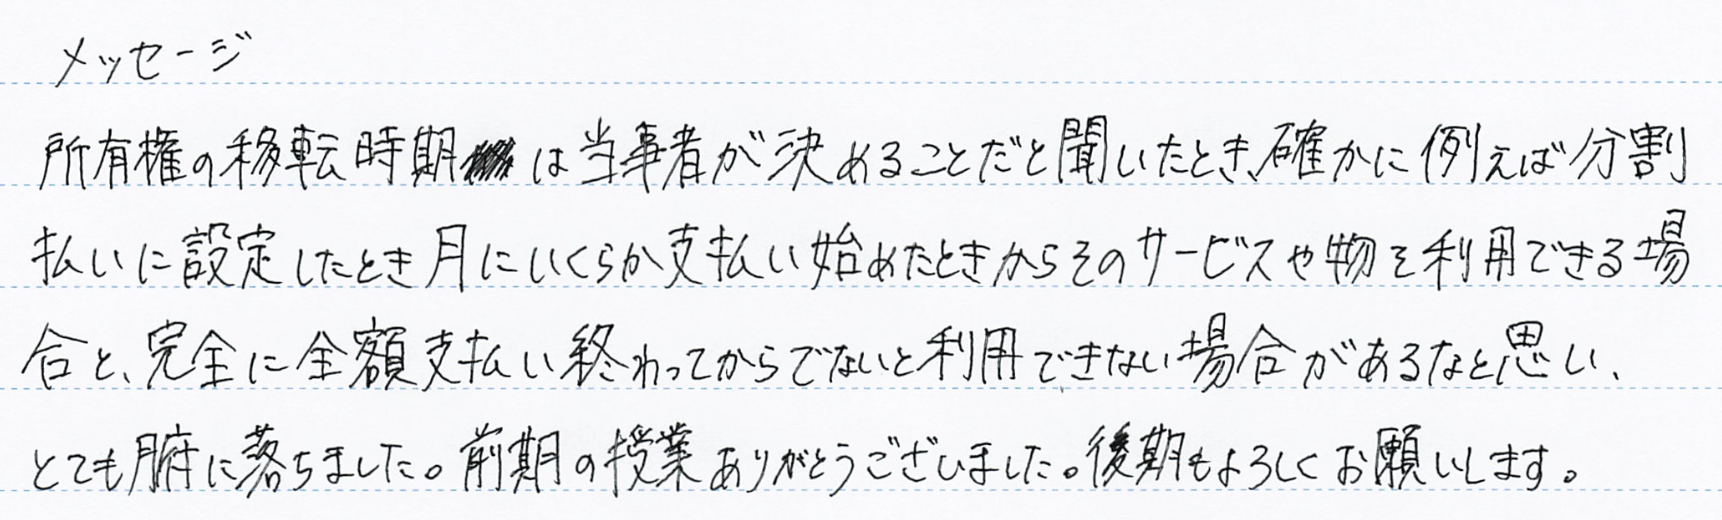 メッセージ
所有権の移転時期は当事者が決めることだと聞いたとき、確かに例えば分割
払いに設定したとき月にいくらか支払い始めたときからそのサービスや物を利用できる場
合と、完全に全額支払い終わってからでないと利用できない場合があるなと思い、
とても腑に落ちました。前期の授業ありがとうございました。後期もよろしくお願いします。